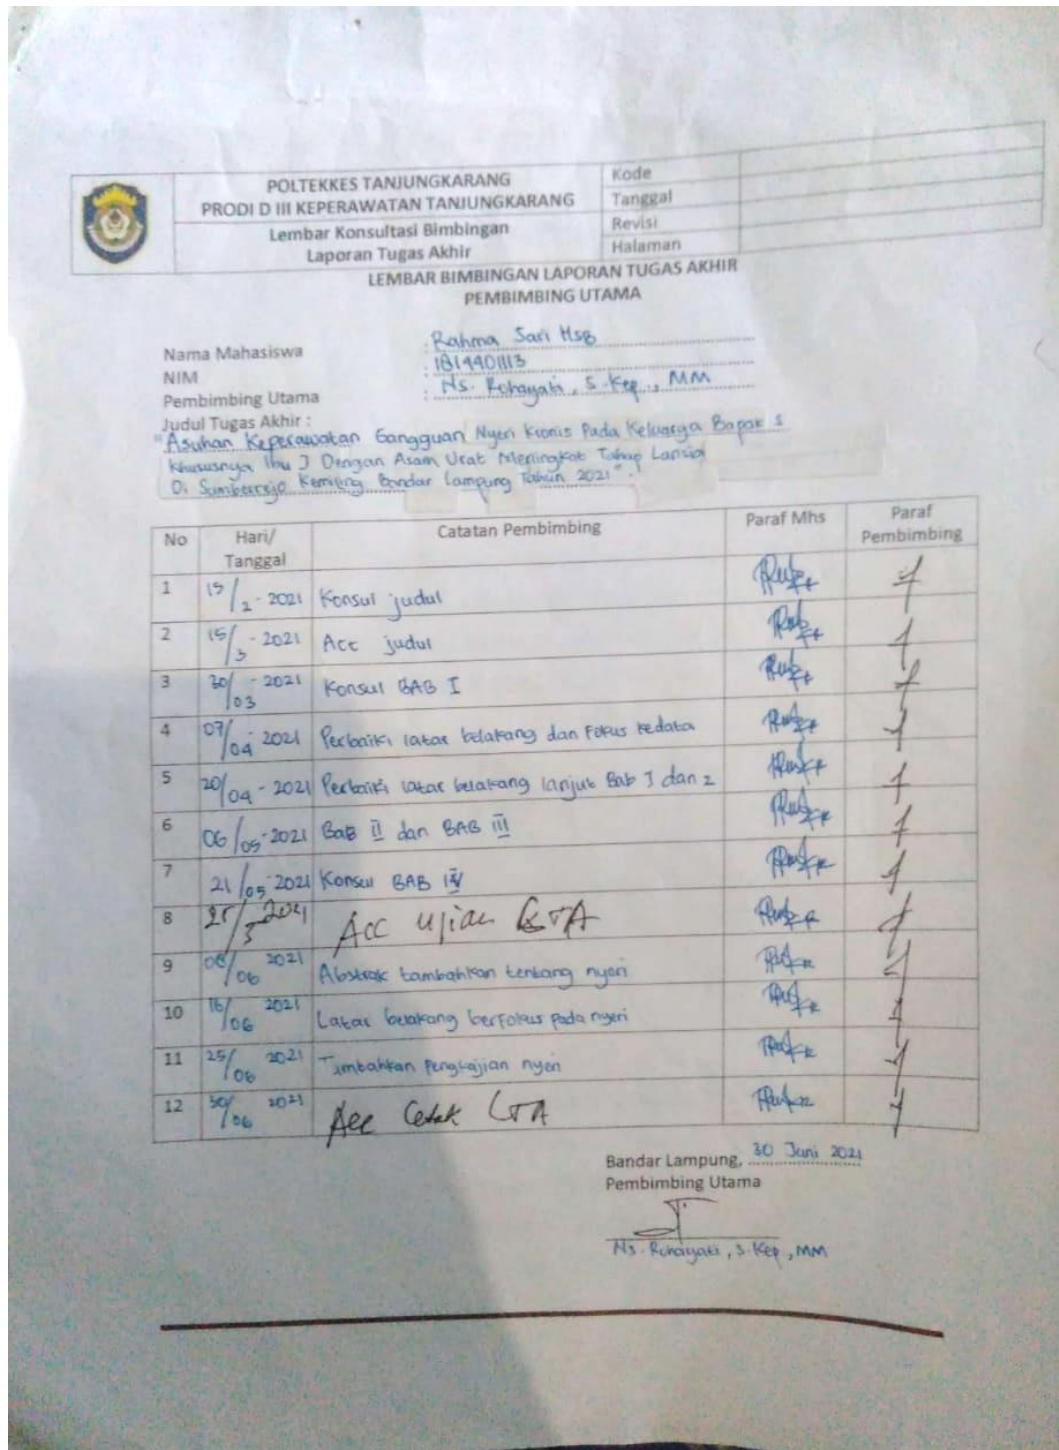 POLTEKKES TANJUNGKARANG
PRODI D III KEPERAWATAN TANJUNGKARANG
Lembar Konsultasi Bimbingan
Laporan Tugas Akhir
Kode
Tanggal
Revisi
Halaman
LEMBAR BIMBINGAN LAPORAN TUGAS AKHIR
PEMBIMBING UTAMA
Nama Mahasiswa : Rahma Sari HSB
NIM : 1814401113
Pembimbing Utama : Ns. Rohayati, S.Kep., MM
Judul Tugas Akhir :
"Asuhan Keperawatan Gangguan Nyeri Kronis Pada Keluarga Bapak S
Khususnya Ibu J Dengan Asam Urat Meningkat Tahap Lansia
Di Sumberrejo Kemiling Bandar Lampung Tahun 2021".
No Hari/ Tanggal Catatan Pembimbing Paraf Mhs Paraf Pembimbing
1 15/2-2021 Konsul judul
2 15/3-2021 Acc judul
3 30/03-2021 Konsul BAB I
4 07/04-2021 Perbaiki latar belakang dan Fokus kedata
5 20/04-2021 Perbaiki latar belakang lanjut Bab I dan 2
6 06/05-2021 BAB II dan BAB III
7 21/05-2021 Konsul BAB IV
8 25/5 2021 Acc ujian LTA
9 08/06 2021 Abstrak tambahkan tentang nyeri
10 16/06 2021 Latar belakang berfokus pada nyeri
11 25/06 2021 Tambahkan pengkajian nyeri
12 30/06 2021 Acc Cetak LTA
Bandar Lampung, 30 Juni 2021
Pembimbing Utama
Ns. Rohayati, S.Kep, MM